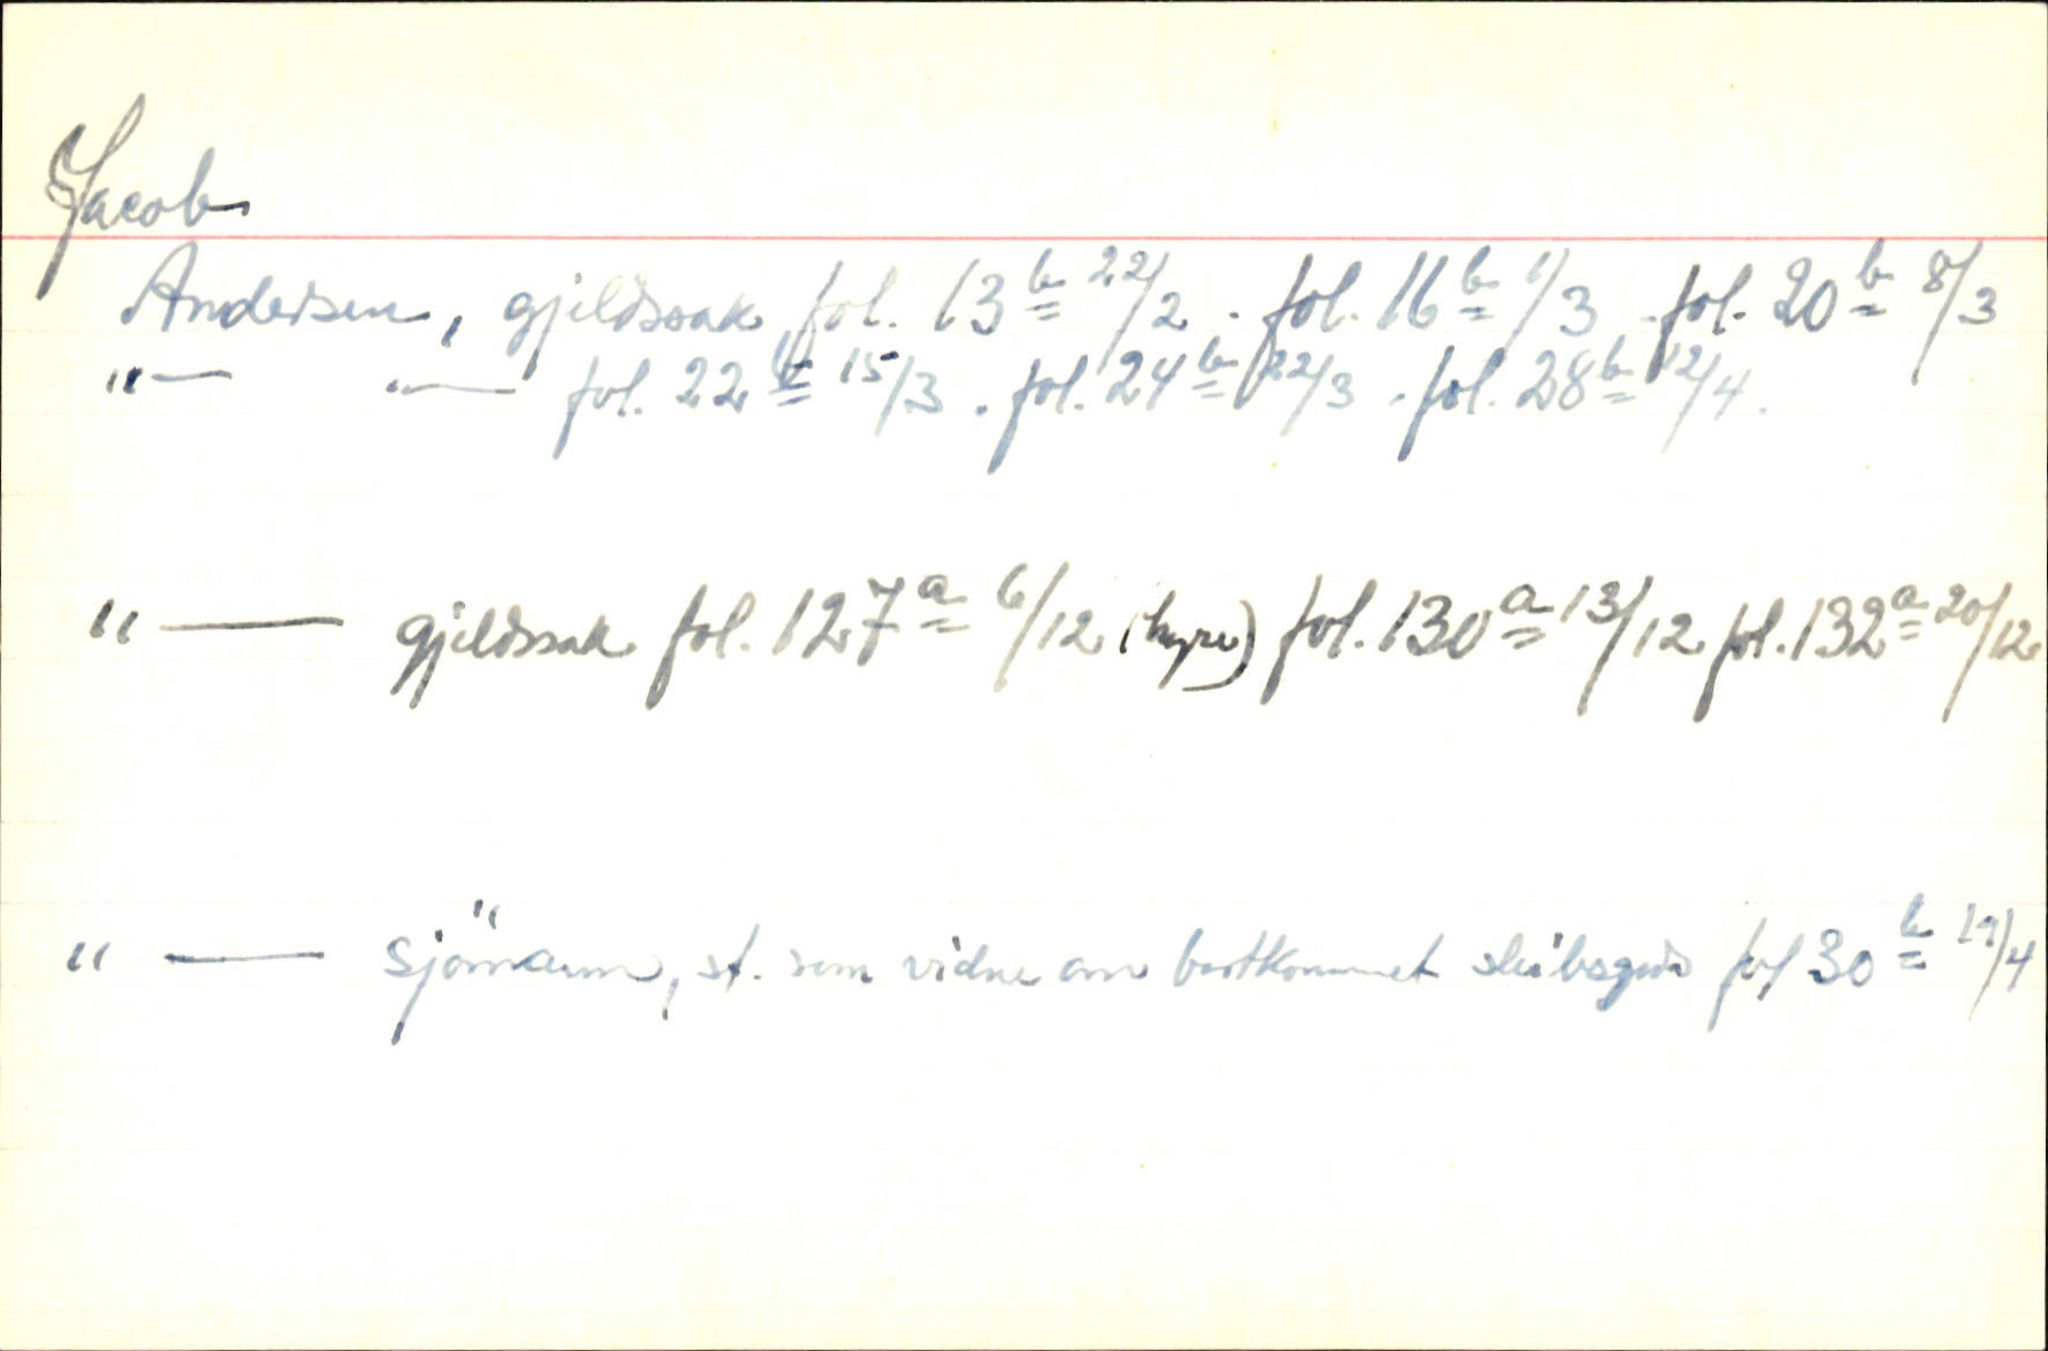 Jacob
Andersen, gjeldssak, fol. 13b 22/2 . fol. 16b 1/3 . fol. 20b 8/3
"— "— fol. 22b 15/3 . fol. 24b 22/3 . fol. 28b 12/4.
"— gjeldssak fol. 127a 6/12 (hyre) fol. 130a 13/12 fol. 132a 20/12
"— sjömann, st. som vidne om bortkommet skibsgods fol 30b 19/4